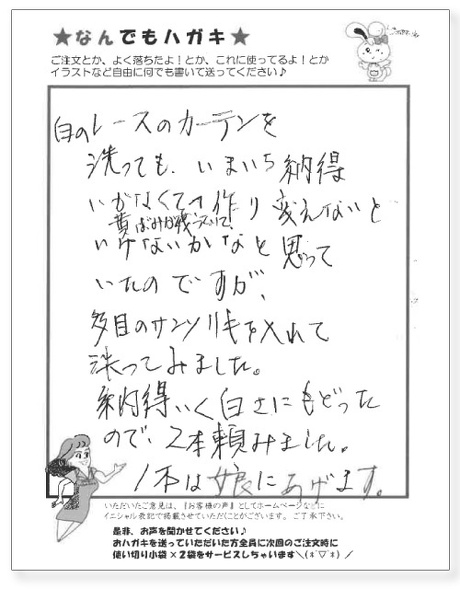 ★なんでもハガキ★
ご注文とか、よく落ちたよ!とか、これに使ってるよ!とか
イラストなど自由に何でも書いて送ってください♪
白のレースのカーテンを
洗っても、いまいち納得
いかなくて、作り変えないと
黄ばみが残っていて、
いけないかなと思って
いたのですが、
多目のサンソリキを入れて
洗ってみました。
納得いく白さにもどった
ので、2本頼みました。
1本は娘にあげます。
いただいたご意見は、『お客様の声』としてホームページなどに
イニシャル表記で掲載させていただくことがございます。ご了承下さい。
是非、お声を聞かせてください♪
おハガキを送っていただいた方全員に次回のご注文時に
使い切り小袋×2袋をサービスしちゃいます＼(*^▽^*)／